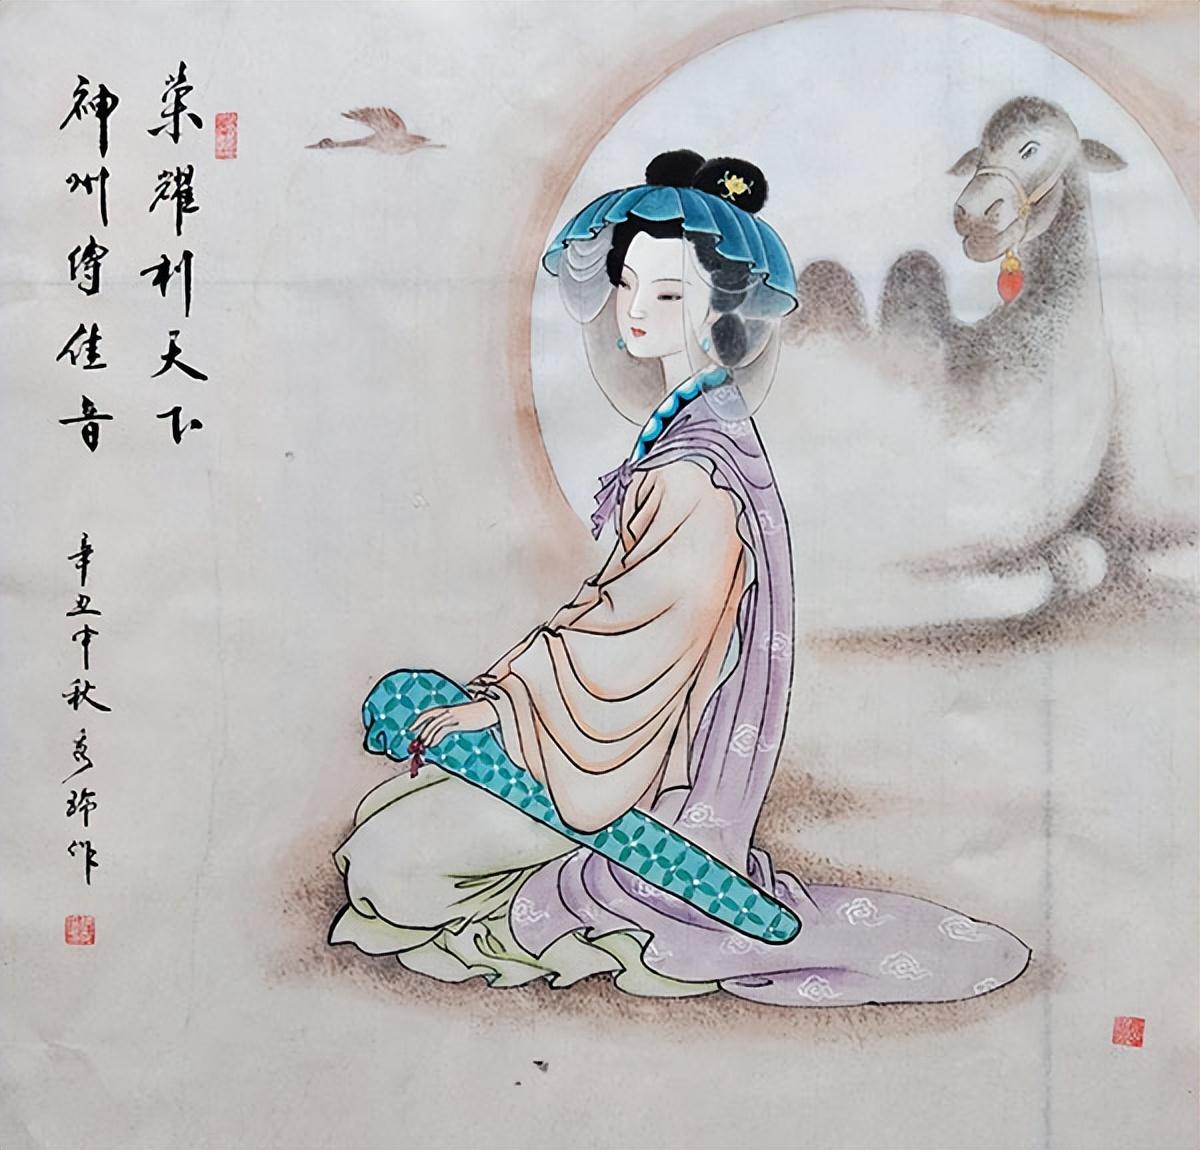 荣耀利天下
神州傳佳音
辛丑中秋 作